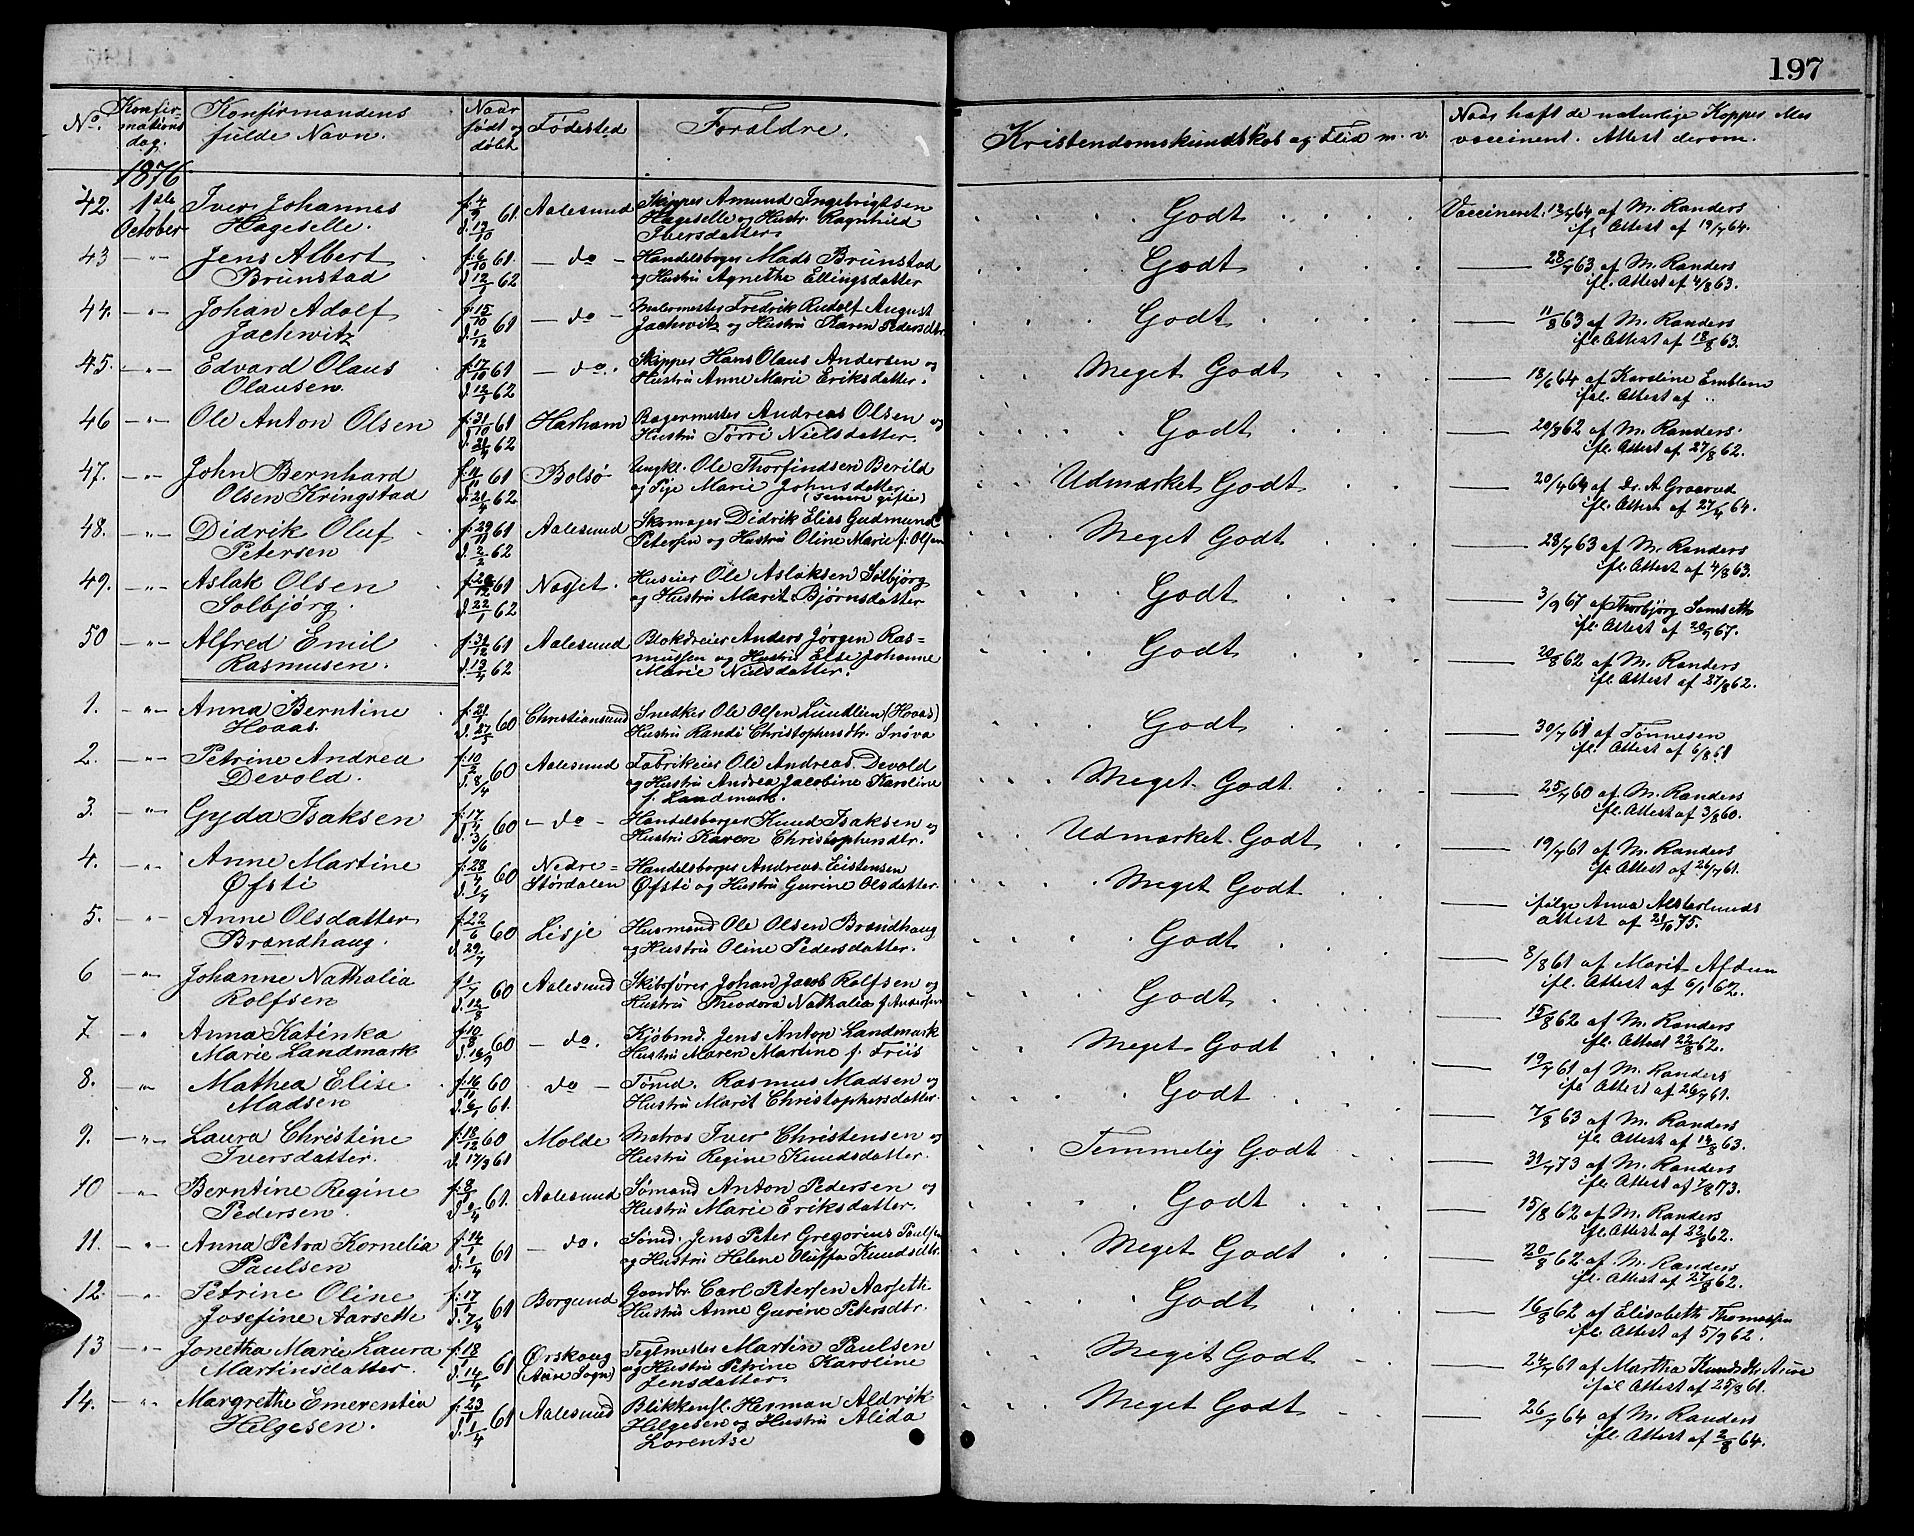 197
No.
Konfir-
mations
dag.
Konfirmandens
fulde Navn.
Naar
født og
døbt
Fødested
Forældre.
Kristendomskundskab og Flid m. v.
Naar haft de naturlige Kopper eller
vaccineret. Attest derom.
1876
42. 1ste October
Iver Johannes
Hageselle.
f. 4/9 61 d. 13/10
Aalesund
Skipper Amund Ingebrigtsen
Hageselle og Hustr. Ragnhild
Iversdatter
Godt
Vaccineret 13/7 64 af M. Randers
ifl Attest af 19/7 64.
43 - " -
Jens Albert
Brunstad
f. 6/10 61. d. 12/1 62
- do -
Handelsborger Mads Brunstad
og Hustru Agnethe Ellingsdatter
Godt
28/7 63 af M. Randers
ifl. Attest af 4/8 63.
44. - " -
Johan Adolf
Jachwitz
f. 15/10 61 d. 1/12
- do -
Malermester Fredrik Rudolf August
Jachwitz og Hustru Karen Pedersdtr.
Godt
11/8 63 af M. Randers
ifl. Attest af 18/8 63.
45. - " -
Edvard Olaus
Olausen
f. 17/10 61 d. 12/1 62
- do.
Skipper Hans Olaus Andersen og
Hustru Anne Marie Eriksdatter.
Meget Godt
18/6 64 af Karoline Emblem
iføl. Attest af "
46 - " -
Ole Anton Olsen
f. 31/10 61 d. 21/4 62
Harham
Bagermester Andreas Olsen og
Hustru Torri Nielsdatter.
Godt
20/8 62 af M. Randers.
ifl. Attest af 27/8 62.
47. - " -
John Bernhard
Olsen Kringstad
f. 11/11 61 d. 21/4 62
Bolsø
Ungkl. Ole Thorfindsen Berild
og Pige Marie Johnsdatter
(senere gifte)
Udmærket Godt
20/4 64 af Dr. A Graarud
ifl. Attest af 27/4 64.
48. - " -
Didrik Oluf
Petersen
f. 29/11 61 d. 2/2 62
Aalesund
Skomager Didrik Elias Gudmund
Petersen og Hustru Oline Marie f. Olsen
Meget Godt
28/7 63 af M. Randers
ifl. Attest af 4/8 63.
49. - " -
Aslak Olsen
Solbjørg.
61 d. 22/1 62
Nesset.
Huseier Ole Aslaksen Solbjørg
og Hustru Marit Bjørnsdatter
Godt
3/9 67 af Thorbjørg
ifl. Attest af 67.
50 - " -
Alfred Emil
Rasmusen.
f. 31/12 61 d. 13/4 62
Aalesund
Blokdreier Anders Jørgen Ras=
mussen og Hustru Else Johanne
Marie Nielsdatter.
Godt
20/8 62 af M. Randers
ifl. Attest af 27/8 62.
1. - " -
Anna Berntine
Hoaas.
f. 21/1 60 d. 27/5
Christiansund
Snedker Ole Olsen Lundlien (Hoaas)
Hustru Randi Christophersdtr. Inova
Godt
30/7 61 af Tønnesen
ifl. Attest af 6/8 61
2. - " -
Petrine Andrea
Devold.
f. 10/2 60 d. 8/4
Aalesund
Fabrikeier Ole Andreas Devold
og Hustru Andrea Jacobine Karoline
f. Landmark.
Meget Godt.
25/7 60 af M. Randers
ifl. Attest af 3/8 60.
3. - " -
Gyda Isaksen
f. 17/4 60 d. 3/6
- do -
Handelsborger Knud Isaksen og
Hustru Karen Christophersdtr.
Udmærket Godt
19/7 61 af M. Randers
ifl Attest af 26/7 61.
4. - "
Anne Martine
Øfsti
f. 28/4 60
Nedre=
Størdalen
Handelsborger Andreas Eistensen
Øfsti og Hustru Gurine Olsdatter.
Meget Godt
ifølge Anna
attest af 21/10 75.
5. - " -
Anne Olsdatter
Brandhaug.
f. 22/6 60 d. 29/7
Lisje
Husmand Ole Olsen Brandhaug
og Hustru Oline Pedersdatter.
Godt
8/8 61 af Marit
ifl. Attest af 6/1 62.
6 - " -
Johanne Nathalia
Rolfsen
f. 1/7 60 d. 12/8
Aalesund
Skibsfører Johan Jacob Rolfsen og
Hustru Theodora Nathalia f. Andersen
Godt
15/8 62 af M. Randers
ifl. Attest 22/8 62.
7 - "
Anna Katinka
Marie Landmark
f. 10/8 60 d. 16/9
- do.
Kjøbmd. Jens Anton Landmark
Hustru Maren Martine f. Friis
Meget Godt
19/7 61 af M. Randers
ifl Attest af 26/7 61.
8. - "
Mathea Elise
Madsen
f. 16/11 60 d. 6/1 61.
do -
Tømd. Rasmus Madsen og
Hustru Marit Christophersdatter.
Godt
7/8 63 af M. Randers
ifl. Attest af 14/8 63.
9. - " -
Laura Christine
Iversdatter.
f. 18/12 60 d. 17/3 61
Molde
Matros Iver Christensen og
Hustru Regine Knudsdatter.
Temmelig Godt
31/7 73 af M. Randers
ifl. Attest af 7/8 73.
10 - " -
Berntine Regine
Pedersen.
f. 8/1 61. d. 1/4
Aalesund
Sømand Anton Pedersen og
Hustru Marie Eriksdatter.
Godt
15/8 62 af M. Randers
ifl. Attest af 22/8 62.
11. - " -
Anna Petra Kornelia
Paulsen
f. 14/1 61 d. 1/4
- do.
Sømd. Jens Peter Gregorius Paulsen
og Hustru Helene Oluffa Knudsdtr.
Meget Godt
20/8 62 af M. Randers
ifl. Attest af 27/8 62.
12. - "
Petrine Oline
Josefine Aarseth
f. 17/1 61 d. 7/4
Borgund
Gaardbr. Carl Petersen Aarseth
Hustru Anne Gurine Petersdtr.
Godt
16/8 62 af Elisabeth Thomassen
ifl. Attest af 5/9 62.
13 - " -
Jonetha Marie Laura
Martinsdatter.
f. 18/1 61 d. 14/4
Ørskoug
(Aure Sogn)
Teglmester Martin Paulsen
og Hustru Petrine Karoline
Jensdatter
Meget Godt
24/7 61 af Martha Knudsdtr Aure
iføl Attest af 25/8 61.
14. - " -
Margrethe Emerentia
Helgesen.
f. 23/1 61 d. 1/4
Aalesund
Blikkensl. Herman Aldrik
Helgesen og Hustru Alida
Lorentse
Meget Godt
26/7 64 af M. Randers
ifl. Attest af 2/8 64.